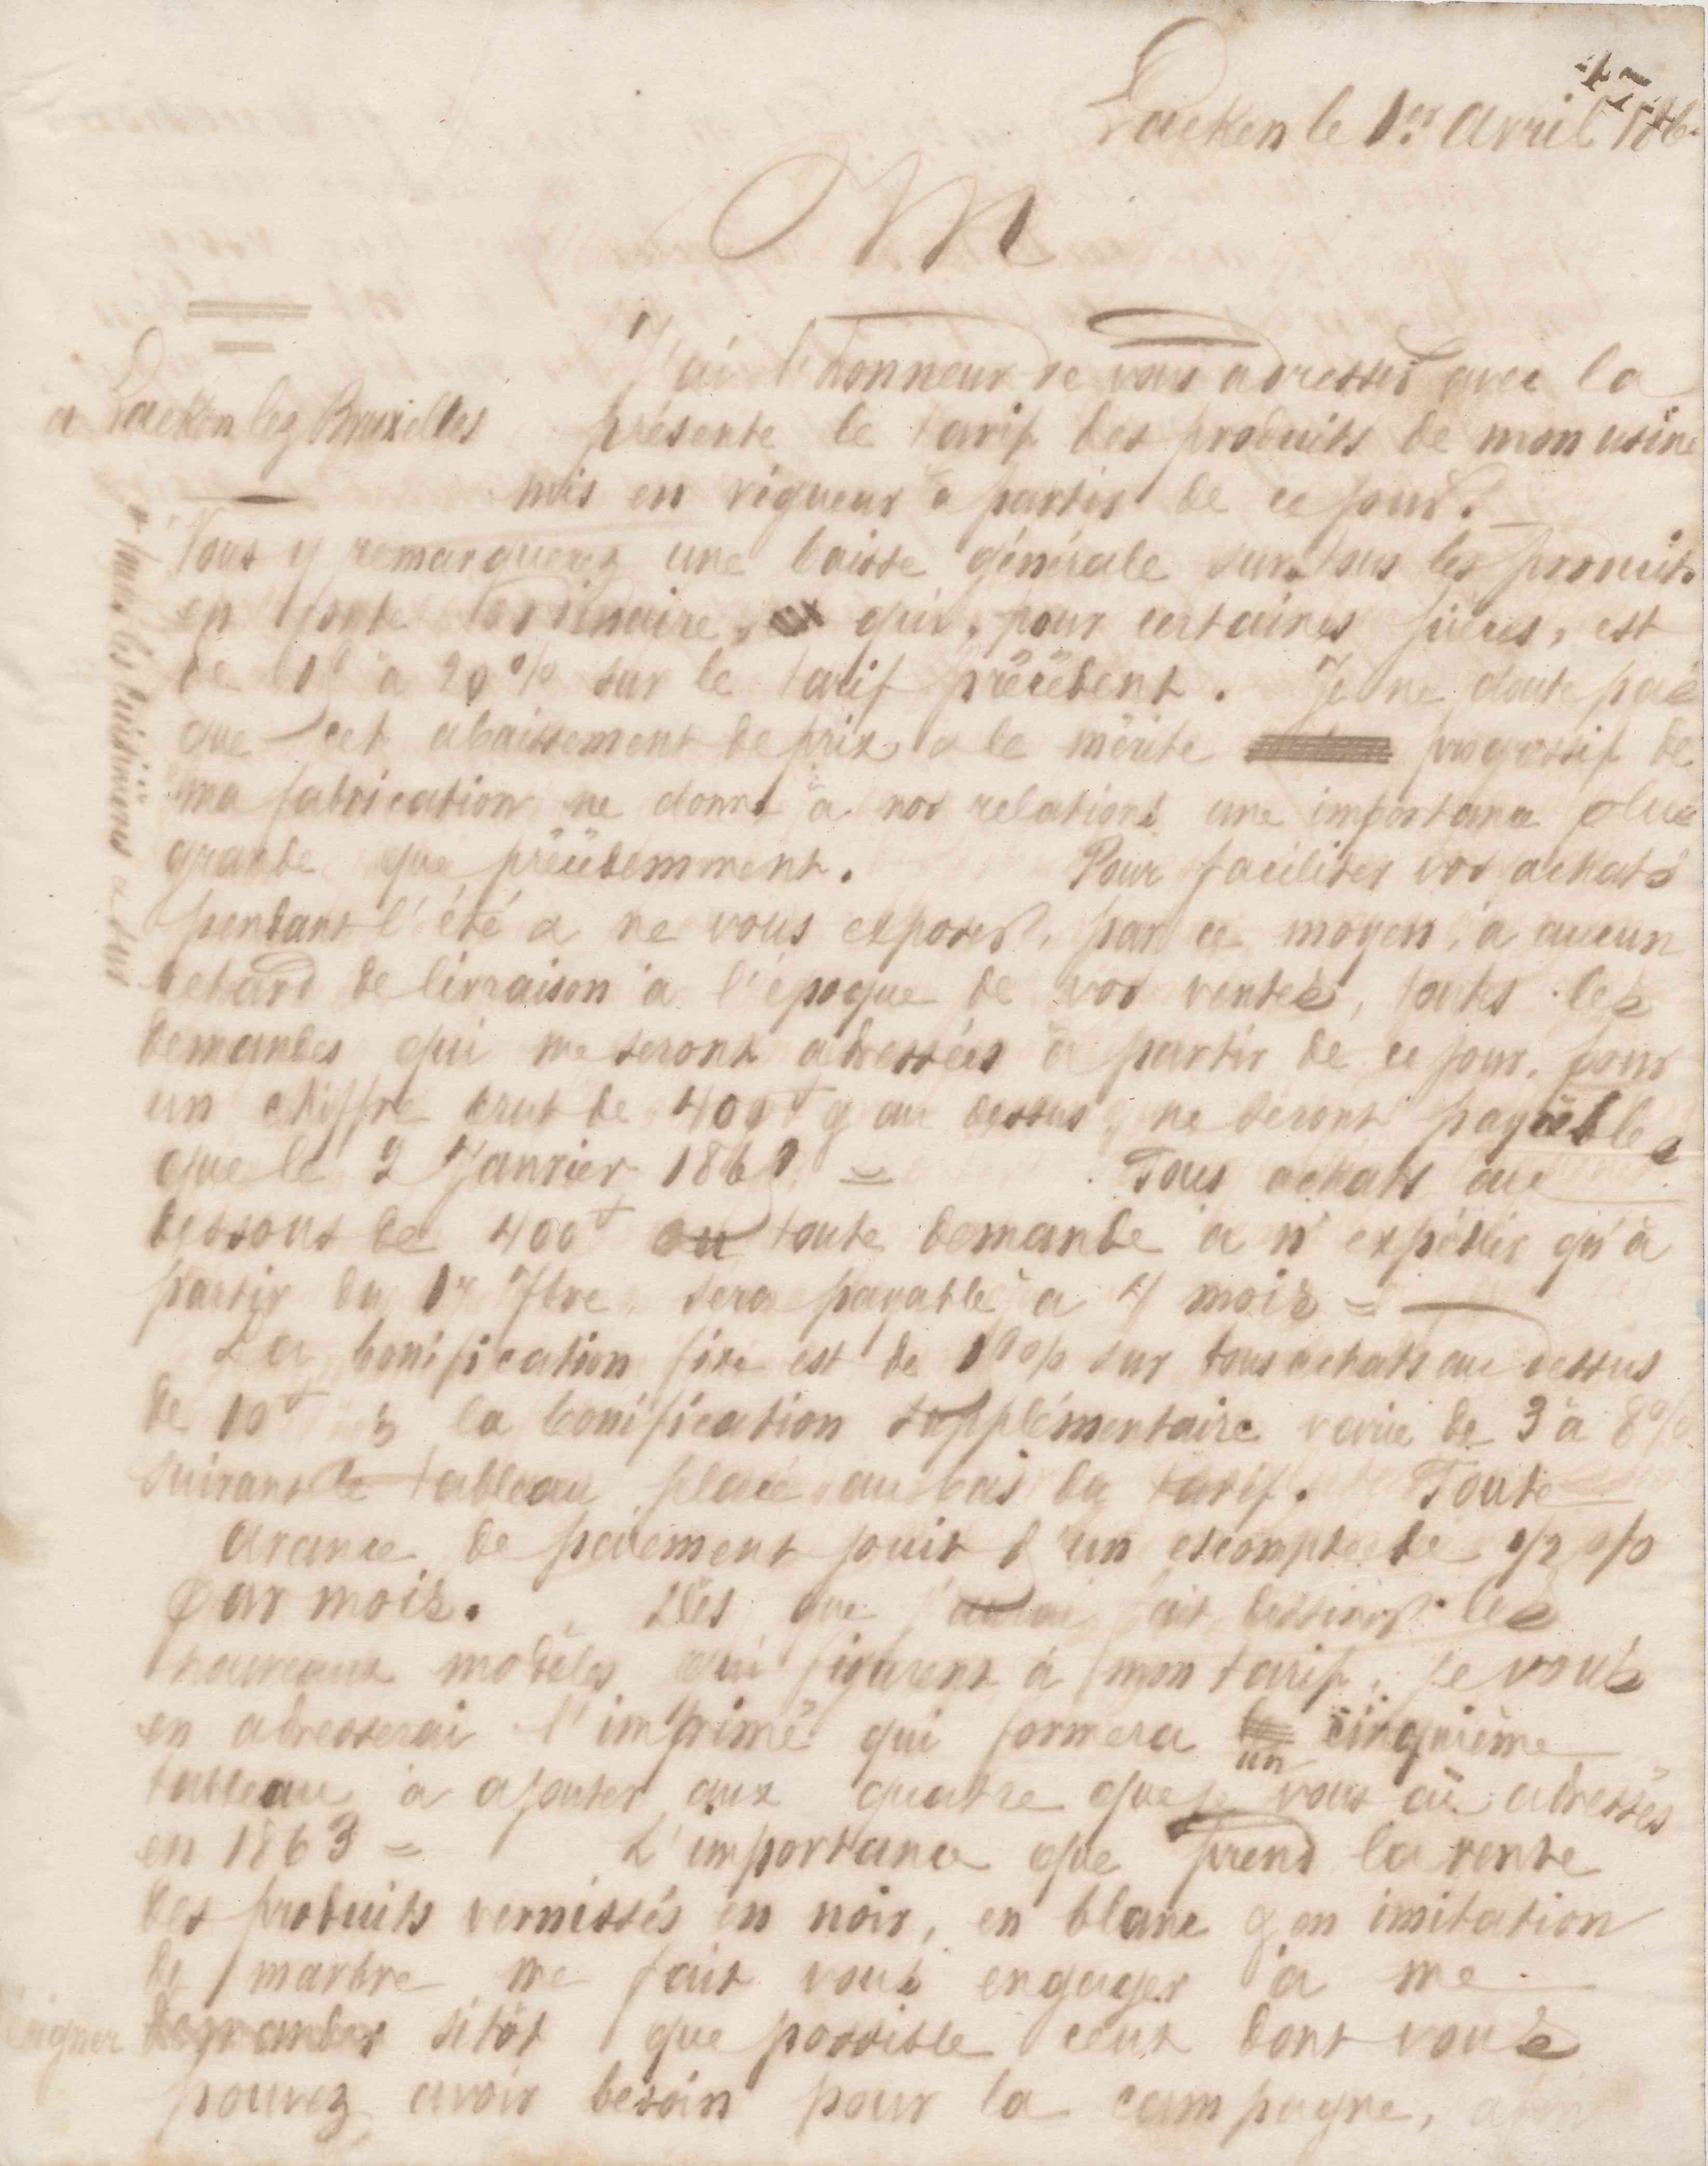 Laeken le 1er Avril 186
M
J'ai l'honneur de vous adresser avec la
à Laeken lez Bruxelles
présente le tarif des produits de mon usine
mis en vigueur à partir de ce jour.
Vous y remarquerez une baisse générale sur tous les produits
en fonte ordinaire, qui, pour certaines pièces, est
de à 20 % sur le tarif précédent. Je ne doute pas
que cet abaissement de prix & le mérite progressif de
ma fabrication ne donne à nos relations une importance plus
grande que précédemment. Pour faciliter vos achats
pendant l'été & ne vous exposer, par ce moyen, à aucun
retard de livraison à l'époque de vos ventes, toutes les
demandes qui me seront adressées à partir de ce jour, pour
un chiffre brut de 400 f & au dessus, ne seront payables
que le 2 Janvier 186 = Tous achats au
dessous de 400 f ou toute demande à n'expédier qu'à
partir du 1er 7bre sera payable à 4 mois =
La bonification fixe est de 10 % sur tous achats au dessus
de 10 f & la bonification supplémentaire varie de 3 à 8 %
suivant le tableau placé au bas du tarif. Toute
avance de paiement jouit d'un escompte de 1/2 %
par mois. Dès que j'aurai fait dessiner les
nouveaux modèles qui figurent à mon tarif, je vous
en adresserai l'imprimé qui formera un cinquième
tableau à ajouter aux quatre que je vous ai adressés
en 1863 = L'importance que prend la vente
des produits vernissés en noir, en blanc & en imitation
de marbre me fait vous engager à me
demander sitôt que possible ceux dont vous
pouvez avoir besoin pour la campagne, afin
& toutes les cuisinières & sur